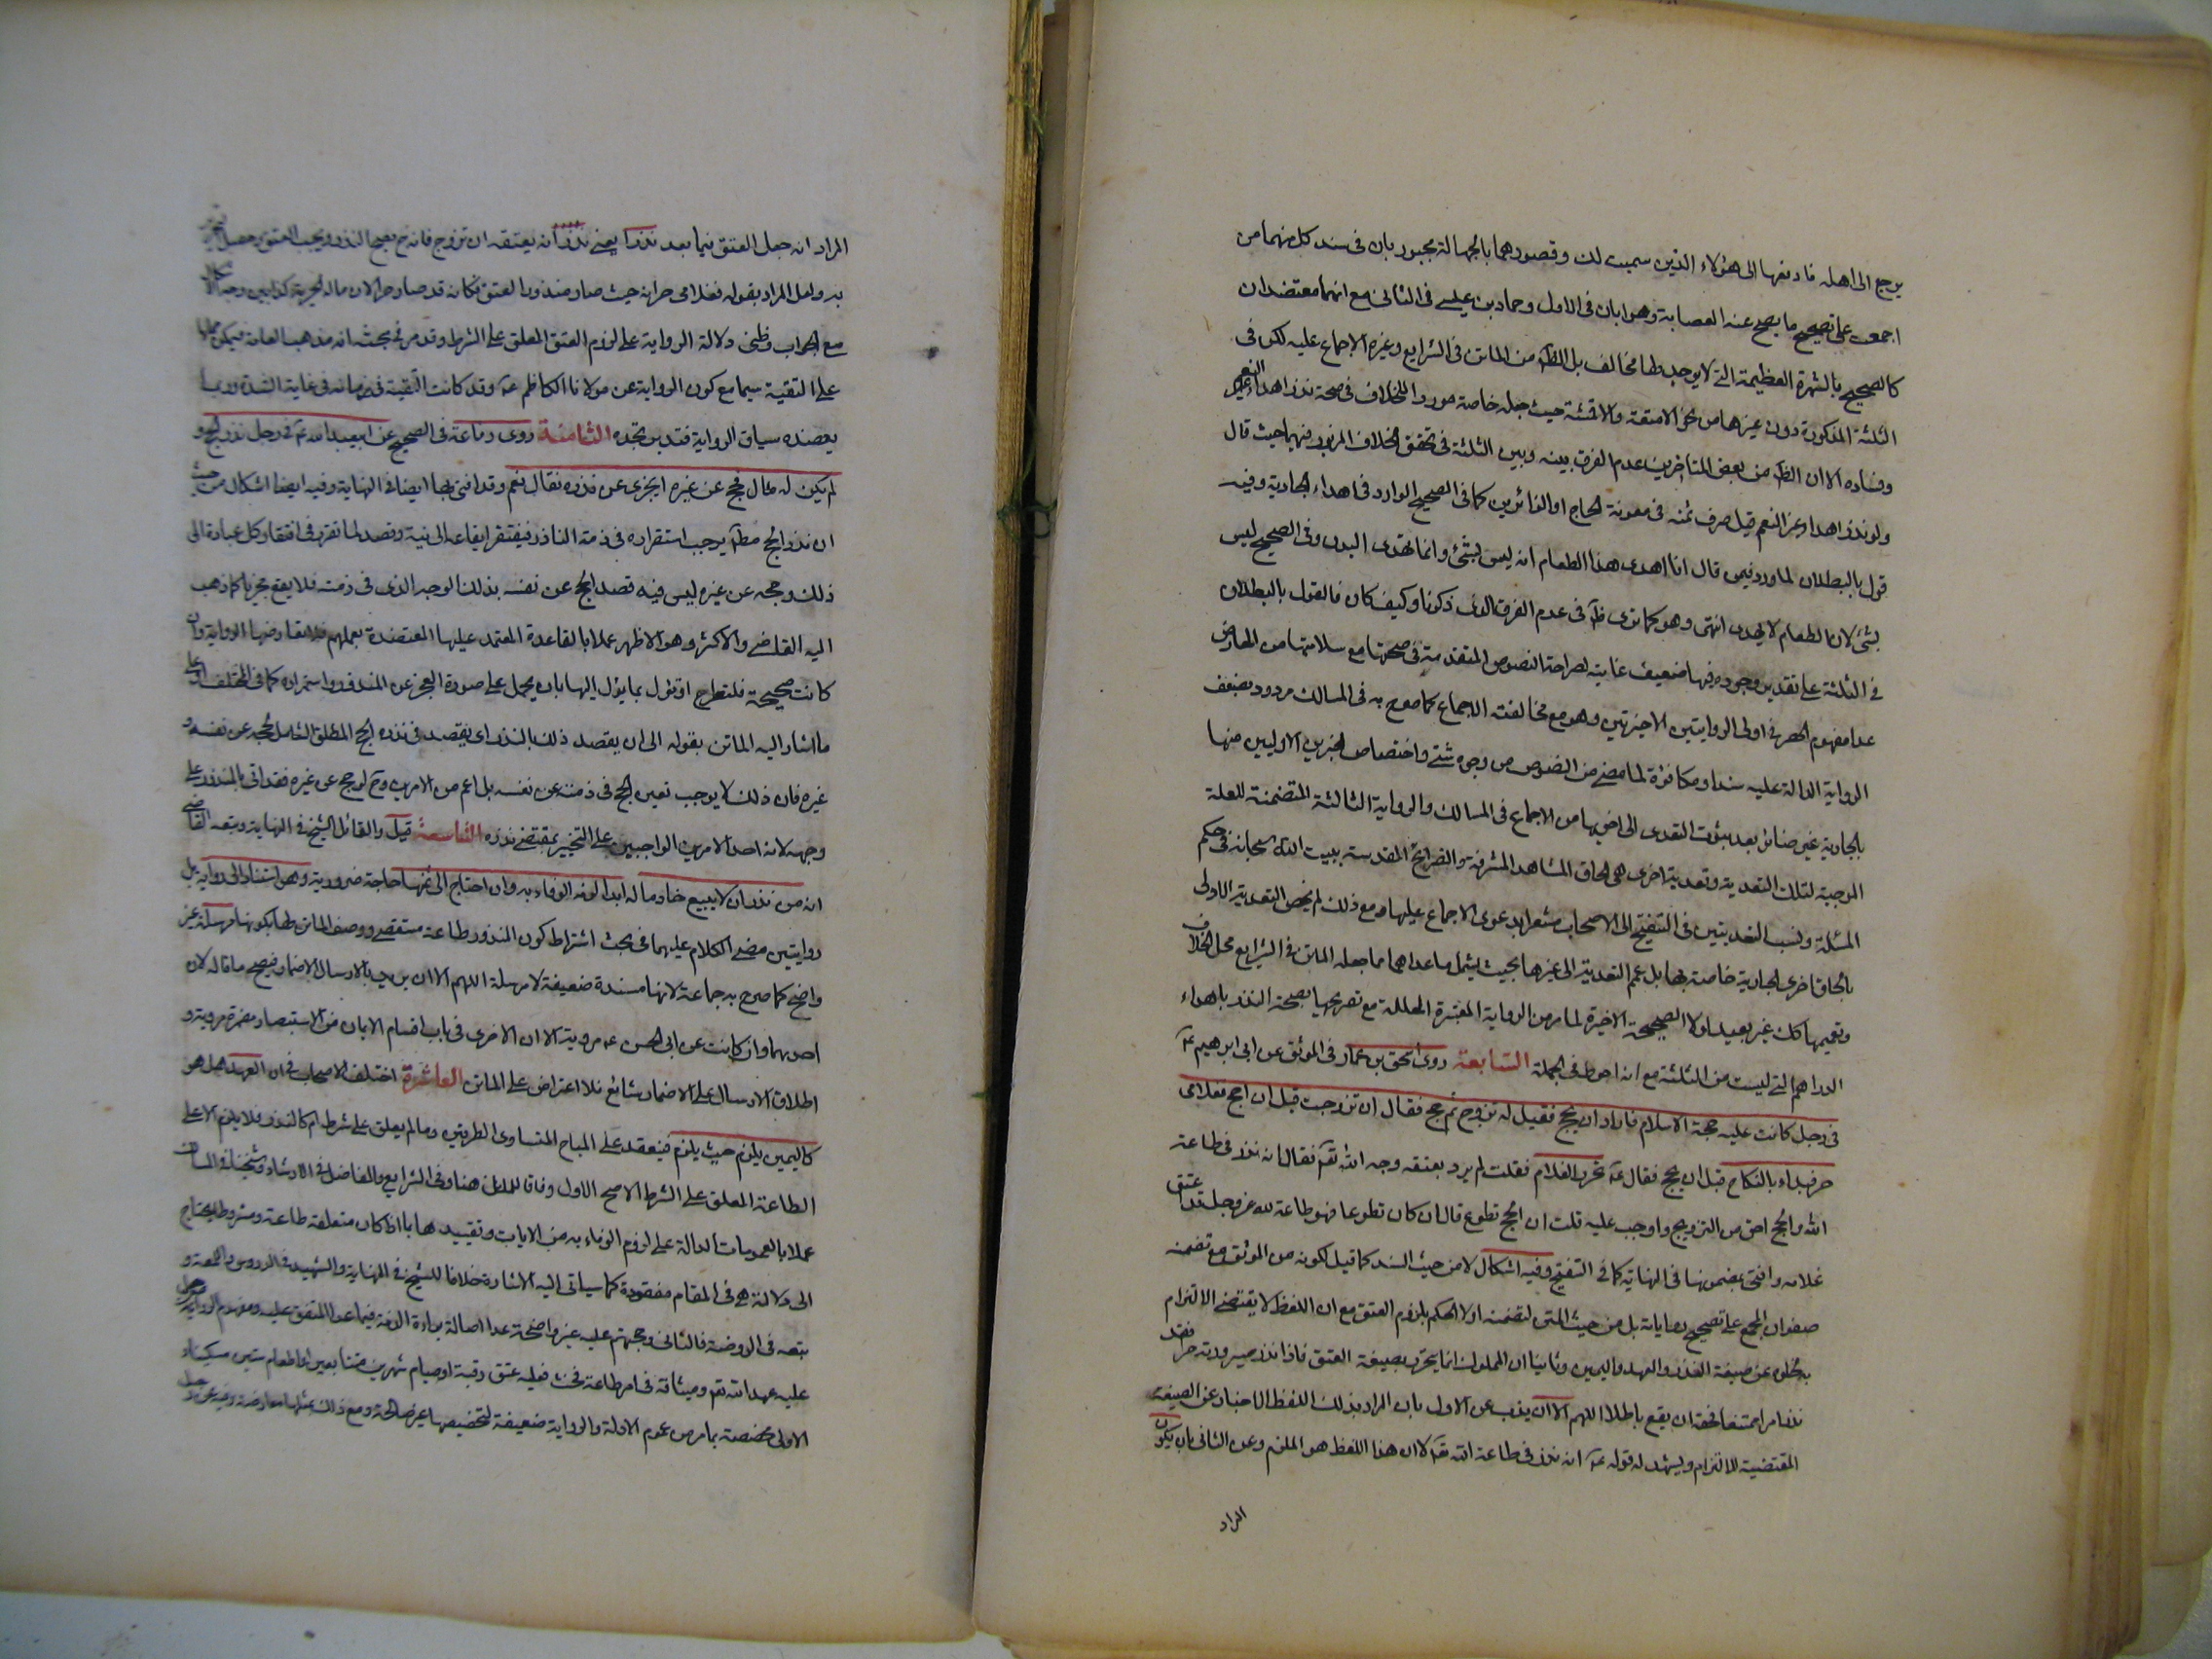 يرجع الى اهله فادفعها الى هؤلاء الذين سميت لك وقصورهما بالجهالة مجبور بان فى سند كل منهما من
اجمعت على تصحيح ما يصح عنه العصابة وهو ابان فى الاول وحماد بن عيسى فى الثانى مع انهما معتضدان
كالصحيح بالشهرة العظيمة التى لا يوجد لها مخالف بل الظ من الماتن فى الشرايع وغيره الاجماع عليه لكن فى
الثلثة المذكورة دون غيرها من نحو الامتعة والاقمشة حيث جعله خاصة مورد الخلاف فى صحة نذر اهداء غير النعم
وفساده الا ان الظ من بعض المتاخرين عدم الفرق بينه وبين الثلثة فى تحقق الخلاف المزبور فيهما حيث قال
ولو نذر اهداء غير النعم قيل صرف ثمنه فى معونة الحاج او الزائرين كما فى الصحيح الوارد فى اهداء الجارية وفيه
قول بالبطلان لما ورد فيمن قال انا اهدى هذا الطعام انه ليس بشئ وانما تهدى البدن وفى الصحيح ليس
بشئ لان الطعام لا يهدى انتهى وهو كما ترى ظ فى عدم الفرق الذى ذكرنا وكيف كان فالقول بالبطلان
فى الثلثة على تقدير وجوده فيها ضعيف غايته لصراحة النصوص المتقدمة فى صحتها مع سلامتها من المعارض
عدا مفهوم الحصر فى اولى الروايتين الاخيرتين وهو مع مخالفته الاجماع كما صرح به فى المسالك مردود بضعف
الرواية الدالة عليه سندا ومكافؤة لما مضى من النصوص من وجوه شتى واختصاص الخبرين الاوليين منها
بالجارية غير ضائر بعد ثبوت التعدى الى اخويها من الاجماع فى المسالك والرواية الثالثة المتضمنة للعلة
الموجبة لتلك التعدية وتعدية اخرى هى الحاق المشاهد المشرفة والضرايح المقدسة ببيت الله سبحانه فى حكم
المسئلة ونسب التعديتين فى التنقيح الى الاصحاب مشعرا بدعوى الاجماع عليهما ومع ذلك لم يخص التعدية الاولى
بالحاق اخرى الجارية خاصة بها بل عمم التعدية الى غيرها بحيث يشمل ما عداهما مما جعله الماتن فى الشرايع محل الخلاف
وتعميمها كك غير بعيد لولا الصحيحة الاخيرة لما مر من الرواية المعتبرة المعللة مع تصريحها بصحة النذر باهداء
الدراهم التى ليست من الثلثة مع انه احوط فى الجملة السابعة روى اسحق بن عمار فى الموثق عن ابى ابرهيم ع
فى رجل كانت عليه حجة الاسلام فاراد ان يحج فقيل له تزوج ثم حج فقال ان تزوجت قبل ان احج فغلامى
حر فبداء بالنكاح قبل ان يحج فقال ع تحرر الغلام فقلت لم يرد بعتقه وجه الله تع فقال انه نذر فى طاعة
الله والحج احق من التزويج واوجب عليه قلت ان الحج تطوع قال ان كان تطوعا فهو طاعة لله عز وجل قد اعتق
غلامه وافتى بمضمونها فى النهاية كما فى التنقيح وفيه اشكال لا من حيث السند كما قيل لكونه من الموثق مع تضمنه
صفوان المجمع على تصحيح رواياته بل من حيث المتن لتضمنه اولا الحكم بلزوم العتق مع ان اللفظ لا يقتضى الالتزام
به لخلوه عن صيغة النذر والعهد واليمين وثانيا ان المملوك انما يتحرر بصيغة العتق فاذا نذر صيرورته حر فقد
نذر امرا ممتنعا فحقه ان يقع باطلا اللهم الا ان يذب عن الاول بان المراد بذلك اللفظ الاخبار عن الصيغة
المقتضية للالتزام ويشهد له قوله ع انه نذر فى طاعة الله تع لا ان هذا اللفظ هو الملزم وعن الثانى بان يكون
المراد
المراد انه جعل العتق فيما بعد نذرا يعنى نذر انه يعتقه ان تزوج فانه ح يصح النذر ويجب العتق
به ولعل المراد بقوله فغلامى حر انه حيث صار منذور العتق فكانه قد صار حرا لان ماله الحرية كذا
مع الجواب وظنى دلالة الرواية على لزوم العتق المعلق على الشرط وقد مر فى بحثه انه مذهب العامة فيمكن حملها
على التقية سيما مع كون الرواية عن مولانا الكاظم ع وقد كانت التقية فى زمانه فى غاية الشدة وربما
يعضده سياق الرواية فتدبر تجده الثامنة روى رفاعة فى الصحيح عن ابيعبد الله ع فى رجل نذر الحج و
لم يكن له مال فحج عن غيره ايجزى عن نذره فقال نعم وقد افتى بها ايضا فى النهاية وفيه ايضا اشكال من حيث
ان نذر الحج مط يوجب استقراره فى ذمة الناذر فيفتقر ايقاعه الى نية وقصد لما تقرر فى افتقار كل عبادة الى
ذلك وحجه عن غيره ليس فيه قصد الحج عن نفسه بذلك الوجه الذى فى ذمته فلا يقع مجزيا كما ذهب
اليه القاضى والاكثر وهو الاظهر عملا بالقاعدة المعتمد عليها المعتضدة بعملهم فلا تعارضها الرواية وان
كانت صحيحة فلتطرح او تؤل بما يؤل اليها بان يحمل على صورة العجز عن المنذور واستمراره كما فى المختلف او على
ما اشار اليه الماتن بقوله الى ان يقصد ذلك بالنذر اى يقصد فى نذره الحج المطلق الشامل لحجه عن نفسه و
غيره فان ذلك لا يوجب تعين الحج فى ذمته عن نفسه بل اعم من الامرين وح لو حج عن غيره فقد اتى بالمنذور على
وجهه لانه احد الامرين الواجبين على التخيير بمقتضى نذره التاسعة قيل والقائل الشيخ فى النهاية وتبعه القاضى
انه من نذر ان لا يبيع خادما له ابدا لزمه الوفاء به وان احتاج الى ثمنها حاجة ضرورية وهو استناد الى رواية بل
روايتين مضى الكلام عليهما فى بحث اشتراط كون المنذور طاعة مستقصى ووصف الماتن لها بكونها مرسلة غير
واضح كما صرح به جماعة لانها مسندة ضعيفة لا مرسلة اللهم الا ان يريد بالارسال الاضمار فيصح ما قاله لان
احديهما وان كانت عن ابى الحسن ع مروية الا ان الاخرى فى باب اقسام الايمان من الاستبصار مضمرة مروية و
اطلاق الارسال على الاضمار شائع فلا اعتراض على الماتن العاشرة اختلف الاصحاب فى ان العهد هل هو
كاليمين يلزم حيث يلزم فينعقد على المباح المتساوى الطرفين وما لم يعلق على شرط ام كالنذر فلا يلزم الا على
الطاعة المعلق على الشرط الاصح الاول وفاقا للماتن هنا وفى الشرايع والفاضل فى الارشاد وشيخنا فى المسالك
عملا بالعمومات الدالة على لزوم الوفاء به من الايات وتقييدها بما اذا كان متعلقه طاعة ومشروطا يحتاج
الى دلالة هى فى المقام مفقودة كما سياتى اليه الاشارة خلافا للشيخ فى النهاية والشهيد فى الدروس واللمعة و
تبعه فى الروضة فالثانى وحجتهم عليه غير واضحة عدا اصالة براءة الذمة فيما عدا المتفق عليه ومفهوم الرواية
عليه عهد الله تع وميثاقه فى امر طاعة فحنث فعليه عتق رقبة او صيام شهرين متتابعين او اطعام ستين مسكينا و
الاولى مخصصة بما مر من عموم الادلة والرواية ضعيفة لتخصيصها غير صالحة ومع ذلك